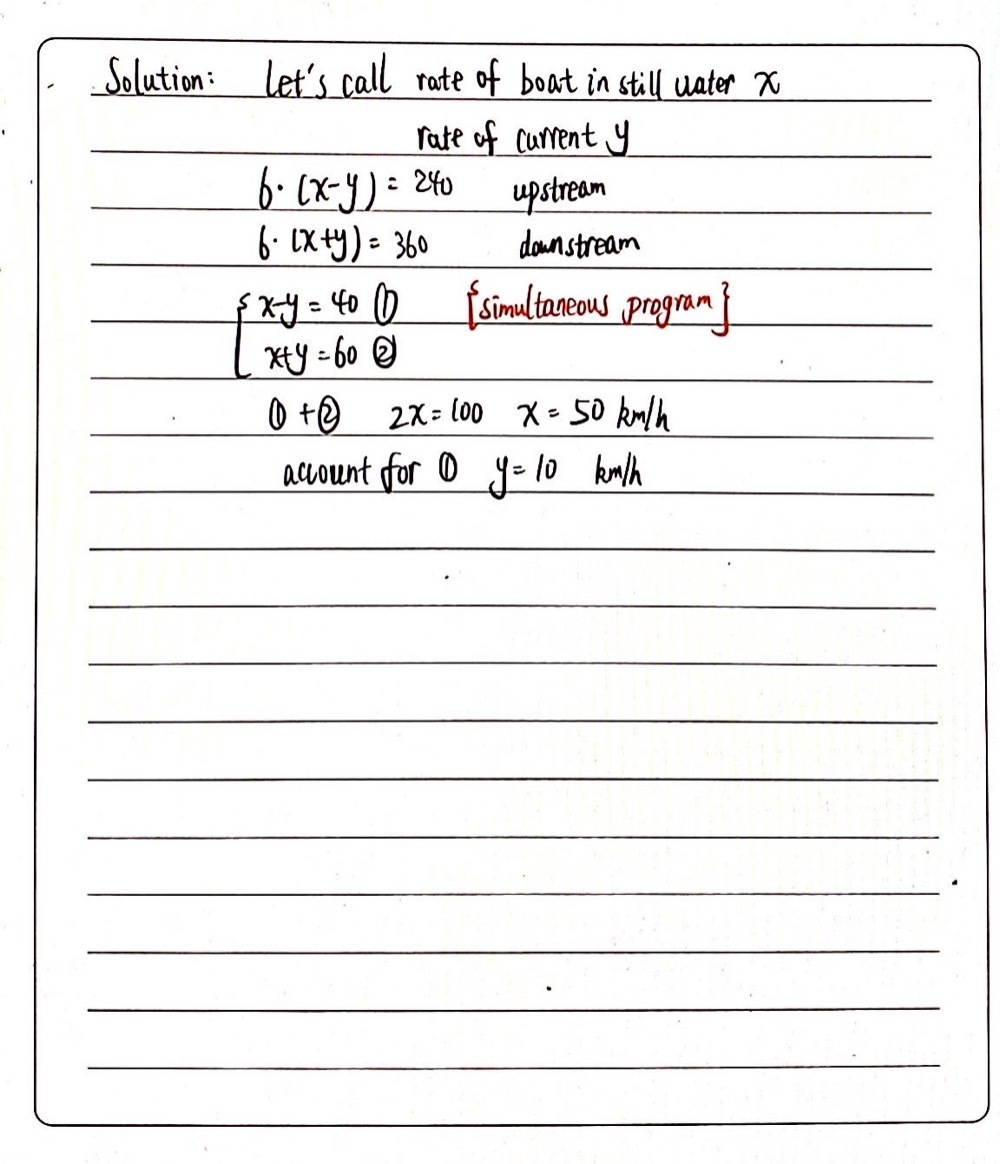 Solution: Let's call rate of boat in still water x
rate of current y
6·(x-y) = 240 upstream
6·(x+y) = 360 downstream
{ x-y = 40 ① {simultaneous program}
x+y = 60 ②
①+② 2x = 100 x = 50 km/h
account for ① y = 10 km/h